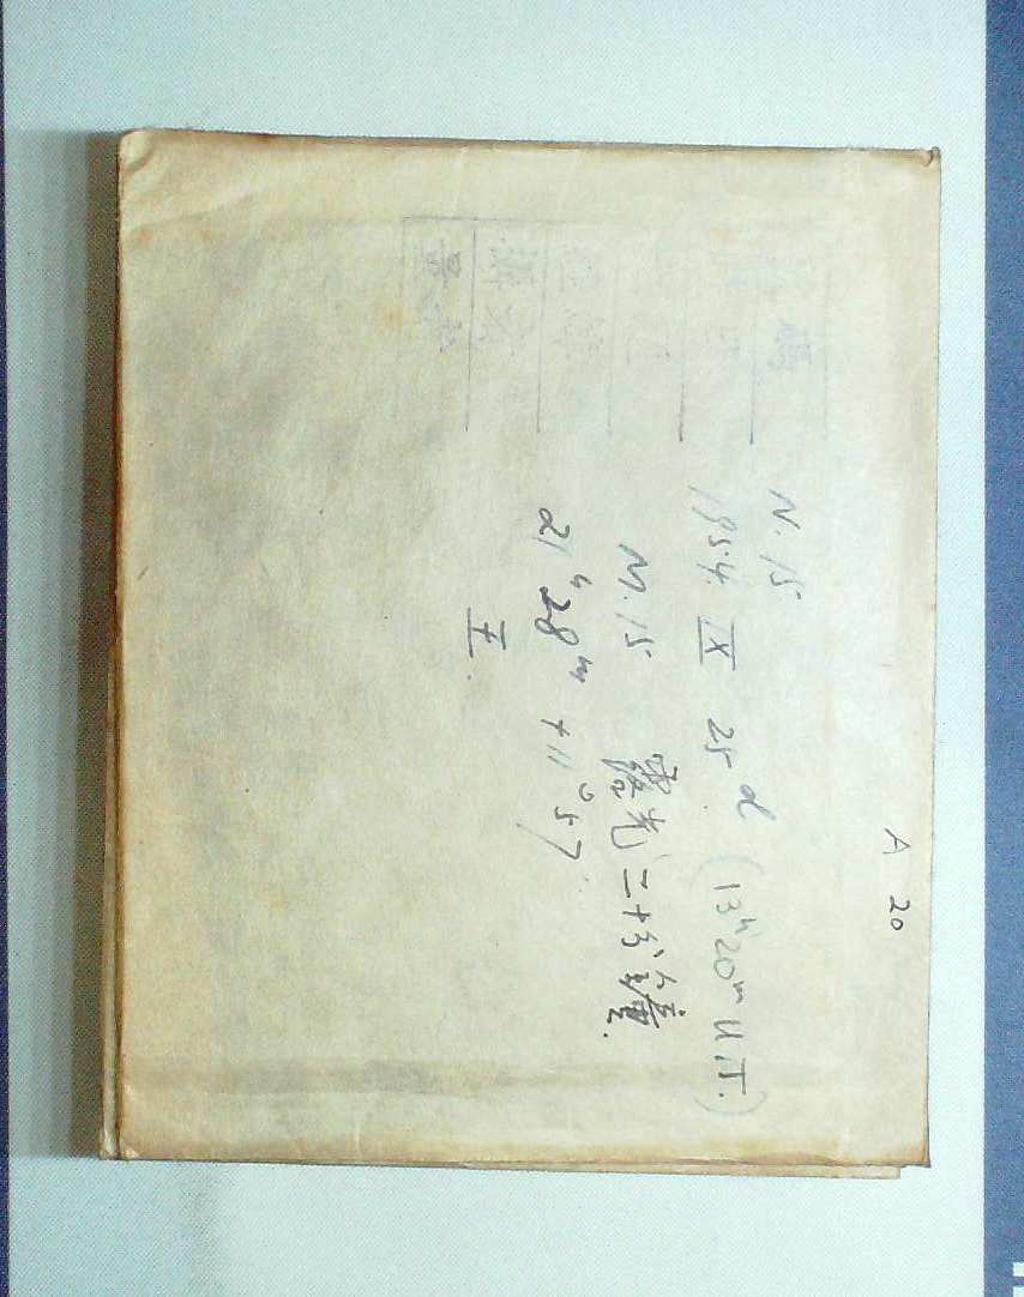 A 20
N. 15
1954 IX 25 d (13h 20m U.T.)
M. 15 露光二十分鐘.
21h 28m + 11° 57